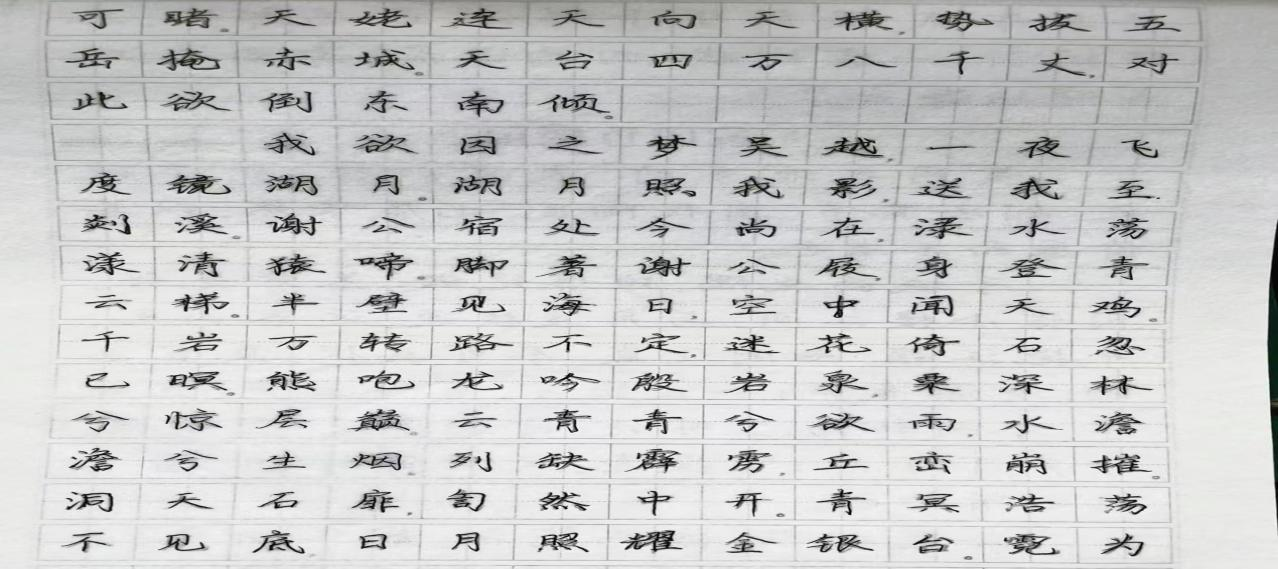 可睹。天姥连天向天横,势拔五
岳掩赤城。天台四万八千丈,对
此欲倒东南倾。
我欲因之梦吴越,一夜飞
度镜湖月。湖月照我影,送我至
剡溪。谢公宿处今尚在,渌水荡
漾清猿啼。脚著谢公屐,身登青
云梯。半壁见海日,空中闻天鸡。
千岩万转路不定,迷花倚石忽
已暝。熊咆龙吟殷岩泉,栗深林
兮惊层巅。云青青兮欲雨,水澹
澹兮生烟。列缺霹雳,丘峦崩摧。
洞天石扉,訇然中开。青冥浩荡
不见底,日月照耀金银台。霓为